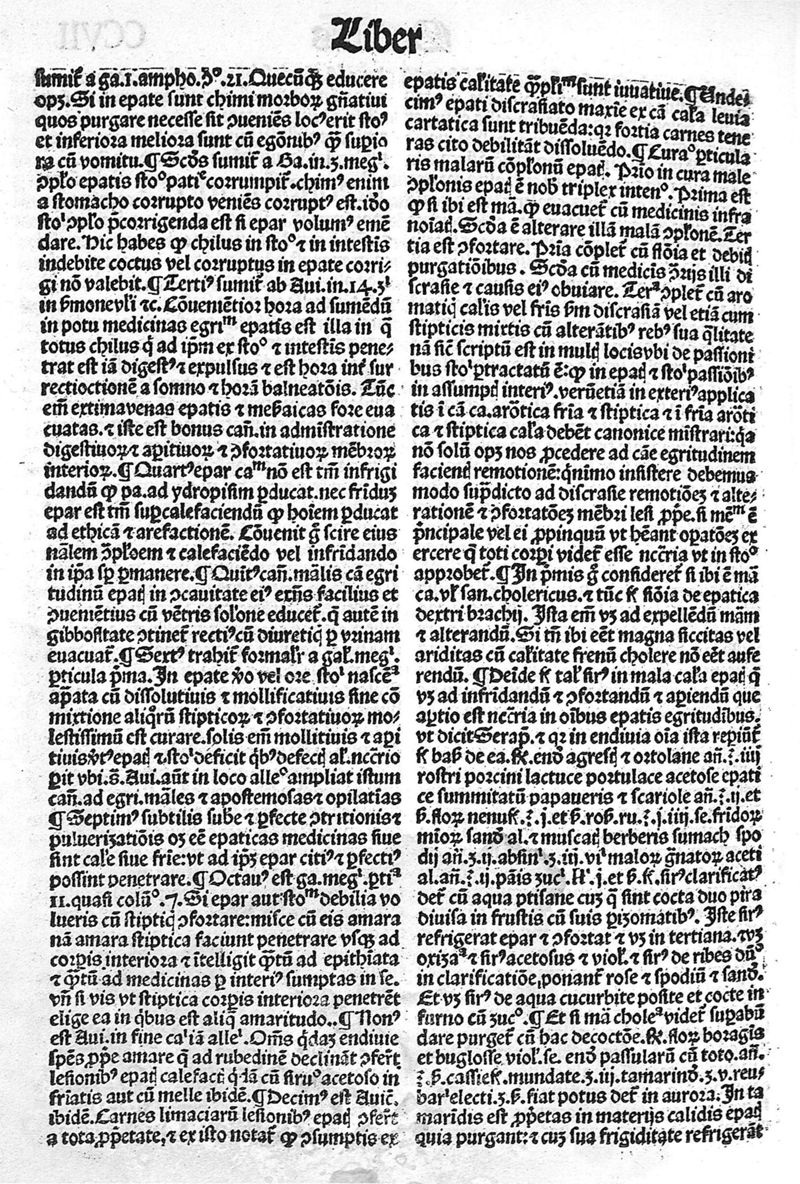 Liber
sumit̄ a ga.1.ampho. ꝯº.21. Quecūqꝫ educere
opꝫ. Si in epate sunt chimi morboꝝ gn̄atiui
quos purgare necesse sit ꝯueniēs locꝰ erit stoꝰ
et inferiora meliora sunt cū egōnibꝰ ꝙ supio
ra cū vomitu. ¶ Scd̄s sumit̄ a Ga. in.3. megˡ.
ꝯplo epatis stoº patiᵉ corrumpit̄. chimꝰ enim
a stomacho corrupto veniēs corruptꝰ est. iō
stoˡ ꝯplo p̄corrigenda est si epar volumꝰ emē
dare. Hic habes ꝙ chilus in stoº ⁊ in intestis
indebite coctus vel corruptus in epate corri⸗
gi nō valebit. ¶ Tertiꝰ sumit̄ ab Aui. in.14.3ˡ
in ⁊c. Cōueniētior hora ad sumēdū
in potu medicinas egriᵐ epatis est illa in q̄
totus chilus q̄ ad ip̄m ex stoº ⁊ intestis pene⸗
trat est iā digestꝰ ⁊ expulsus ⁊ est hora int̄ sur
rectioctionē a somno ⁊ horā balneatōis. Tūc
em̄ extimauenas epatis ⁊ meẞaicas fore eua
cuatas. ⁊ iste est bonus can̄. in admistratione
digestiuoꝝ ⁊ apitiuoꝝ ⁊ ꝯfortatiuoꝝ mēbroꝝ
interioꝝ. ¶ Quartꝰ epar caᵐ nō est tm̄ infrigi
dandū ꝙ pa. ad ydropisim ꝑducat. nec frīduꝫ
epar est tm̄ supcalefaciendū ꝙ hoīem ꝑducat
ad ethicā ⁊ arefactionē. Cōuenit g̊ scire eius
nālem ꝯploem ⁊ calefaciēdo vel infridando
in ip̄a sp̄ ꝑmanere. ¶ Quītꝰ can̄. mālis cā egri
tudinū epatꝭ in ꝯcauitate eiꝰ exn̄s facilius et
ꝯueniētius cū vētris solone educet̄. q̄ autē in
gibbositate ꝯtinet̄ rectiꝰ cū diureticꝭ ꝑ vrinam
euacuat̄. ¶ Sextꝰ trahit̄ formalr̄ a gal. megˡ.
ꝑticula p̄ma. In epate ꝟo vel ore stoˡ nascēᵃ
apata cū dissolutiuis ⁊ mollificatiuis sine cō
mixtione aliqr̄ū stipticoꝝ ⁊ ꝯfortatiuoꝝ mo⸗
lestissimū est curare. solis em̄ mollitiuis ⁊ api
tiuis ꝟtꝰ epatꝭ ⁊ stoˡ deficit q̄bꝰ defecꝭ al. nccrio
ꝑit vbi.s̄. Aui. aūt in loco alleº ampliat istum
can̄. ad egri. māles ⁊ apostemosas ⁊ opilatiās
¶ Septimꝰ subtilis sube ⁊ ꝑfecte ꝯtritionis ⁊
puluerizatiōis oꝫ eē epaticas medicinas siue
sint cale siue frie: vt ad ip̄ꝫ epar citiꝰ ⁊ ꝑfectiꝰ
possint penetrare. ¶ Octauꝰ est ga. megˡ. ꝑtiᵃ
11. quasi colūº.7. Si epar aut stoᵐ debilia vo
lueris cū stipticꝭ ꝯfortare: misce cū eis amara
nā amara stiptica faciunt penetrare vsqꝫ ad
corpis interiora ⁊ ītelligit q̄tū ad epithiata
⁊ q̄tū ad medicinas ꝑ interiꝰ sumptas in se.
vn̄ si vis vt stiptica corpis interiora penetrēt
elige ea in q̄bus est aliq̄ amaritudo.. ¶ Nonꝰ
est Aui. in fine caˡ iā alleˡ. Om̄s q̄daꝫ endiuie
sp̄es ꝓp̄e amare q̄ ad rubedinē declināt ꝯfert̄
lesionibꝰ epatꝭ calefacꝭ q̄ iā cū siruº acetoso in
friatis aut cū melle ibidē. ¶ Decimꝰ est Auic̄.
ibidē. Carnes limaciarū lesionibꝰ epatꝭ ꝯfert̄
a tota ꝓp̄etate, ⁊ ex isto notat̄ ꝙ ꝯsumptis ex
epatis calitate ꝙpliᵐ sunt iuuatiue. ¶ Undeē
cimꝰ epati discrasiato maxīe ex cā cala leuia
cartatica sunt tribuēda: qꝛ fortia carnes tene
ras cito debilitāt dissoluēdo. ¶ Curaº ꝑticula
ris malarū cōplonū epatꝭ. Prīo in cura male
ꝯplonis epatꝭ ē nob̄ triplex intenº. Prima est
ꝙ si ibi est mā. ꝙ euacuet̄ cū medicinis infra
noīatꝭ. Scd̄a ē alterare illā malā ꝯplonē. Ter
tia est ꝯfortare. Prīa cōplet̄ cū flōia et debitꝭ
purgatiōibus. Scd̄a cū medicis ꝯrijs illi di
scrasie ⁊ causis eiꝰ obuiare. Terᵃ ꝯplet̄ cū aro
maticꝭ calis vel fris ẞm discrasiā vel etiā cum
stipticis mixtis cū alterātibꝰ rebꝰ sua q̄litate
nā sic̄ scriptū est in multꝭ locis vbi de passioni
bus stoˡ ptractatū ē: ꝙ in epatꝭ ⁊ stoˡ passiōibꝰ
in assumpꝭ interiꝰ. verūetiā in exteriꝰ applica
tis ī cā ca. arōtica fria ⁊ stiptica ⁊ ī fria arōti
ca ⁊ stiptica cala debēt canonice mistrari: qa
nō solū opꝫ nos ꝓcedere ad cāe egritudinem
faciendꝭ remotionē: q̄nimo insistere debemus
modo supdicto ad discrasie remotiōeꝫ ⁊ alte⸗
rationē ⁊ ꝯfortatōeꝫ mēbri lesi ꝓp̄e. si mēᵐ ē
p̄ncipale vel ei ꝓpinquū vt hēant opatōeꝫ ex
ercere q̄ toti corpi videt̄ esse nccria vt in stoº
approbet̄. ¶ In p̄mis g̊ consideret̄ si ibi ē mā
ca. vl̄ san. cholericus. ⁊ tūc fꝭ flōia de epatica
dextri brachij. Ista em̄ vꝫ ad expellēdū mām
⁊ alterandū. Si tn̄ ibi eēt magna siccitas vel
ariditas cū calitate frenū cholere nō eēt aufe
rendū. ¶ Deīde fꝭ talꝭ sirꝰ in mala cala epatꝭ q̄
vꝫ ad infridandū ⁊ ꝯfortandū ⁊ apiendū que
aptio est nccria in oībus epatis egritudibus.
vt dicit Serap̄. ⁊ qꝛ in endiuia oīa ista repiūt̄
fꝭ habꝫ de ea. ℞. endꝰ agrestꝭ ⁊ ortolane an̄.℥.iiij
rostri porcini lactuce portulace acetose epati
ce summitatū papaueris ⁊ scariole an̄.℥.ij. et
ẞ. floꝝ nenufꝭ.℥.j. et ẞ. roꝭ. ru.℥.j.iiij.se.fridoꝝ
mīoꝝ sand̄ al. ⁊ muscatꝭ berberis sumach spo
dij an̄.ʒ.ij. absinˡ.ʒ.iij. viˡ maloꝝ gn̄atoꝝ aceti
al. an̄.℥.ij. pāis zucˡ. lī.j. et ẞ. fꝭ. sirꝰ clarificatꝰ
det̄ cū aqua ptisane cuꝫ q̄ sint cocta duo pira
diuisa in frustis cū suis pizomatibꝰ. Iste sirꝰ
refrigerat epar ⁊ ꝯfortat ⁊ vꝫ in tertiana. ⁊vꝫ
oxizaᵃ ⁊ sirꝰ acetosus ⁊ violꝭ. ⁊ sirꝰ de ribes dū
in clarificatiōe, ponant̄ rose ⁊ spodiū ⁊ sand̄.
Et vꝫ sirꝰ de aqua cucurbite posite et cocte in
furno cū zucº. ¶ Et si mā choleᵃ videt̄ supabū
dare purget̄ cū hac decoctōe. ℞. floꝝ boragis
et buglosse violꝭ.se. endꝰ passularū cū toto. an̄.
℥.ẞ. cassiefꝭ. mundate.ʒ.iij. tamarind̄.ʒ.v. reu⸗
barˡ electi.ʒ.ẞ. fiat potus det̄ in aurora. In ta
maridis est ꝓp̄etas in materijs calidis epatꝭ
quia purgant: ⁊ cuꝫ sua frigiditate refrigerāt